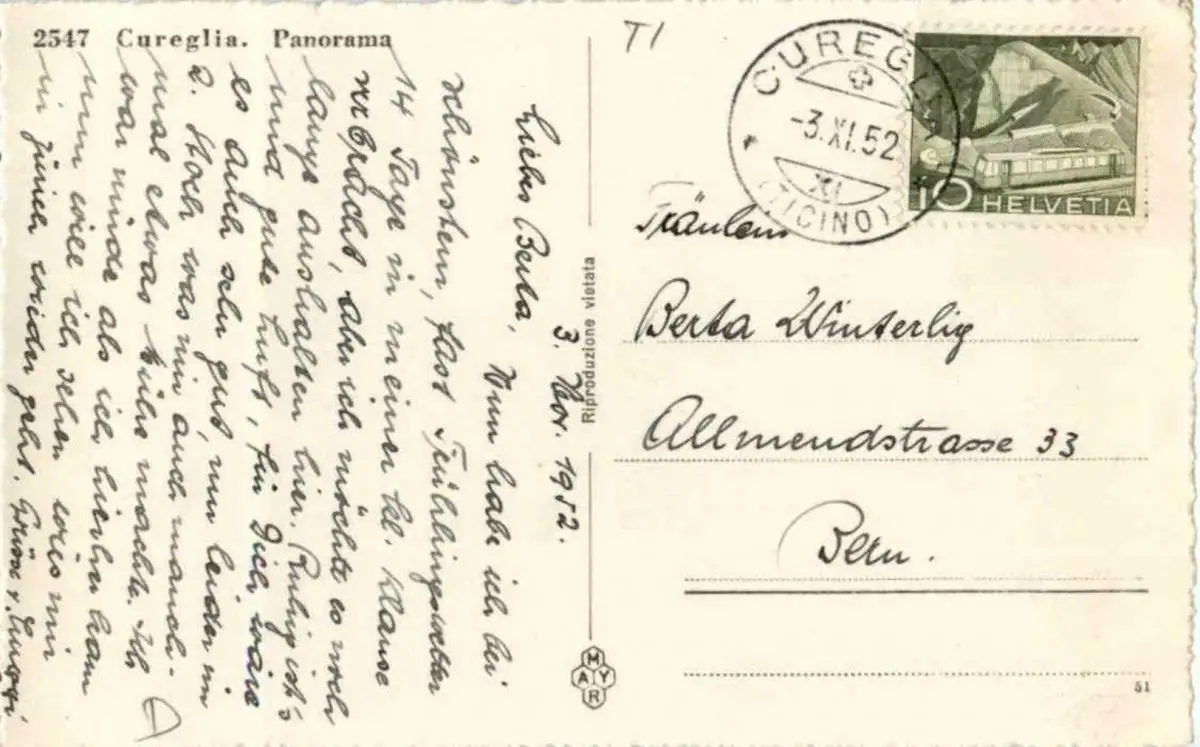 2547 Cureglia. Panorama
T1
CUREGLIA
-3.XI.52
XI
(TICINO)
10 HELVETIA
3. Nov. 1952.
Liebe Berta, Nun habe ich bei
schönstem, fast Frühlingswetter
14 Tage in meiner kl. Klause
verbracht, aber ich möchte es noch
lange aushalten hier. Ruhig ist's
und gute Luft, für Dich wäre
es auch sehr gut, nur leider im
2. Stock was mir auch manch-
mal etwas Mühe machte. Ich
war müde als ich hierher kam
nun will ich sehen wies mir
in Zürich wieder geht. Grüsse v.
Riproduzione vietata
Fräulein
Berta Winterlig
Allmendstrasse 33
Bern.
MAYR
51